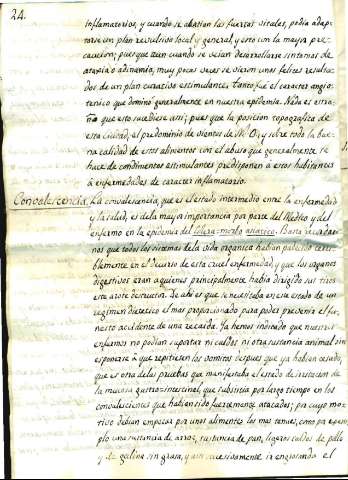 24.
inflamatorios, y cuando se abatian las fuerzas vitales, podia adop-
tarse un plan revulsivo local y general, y esto con la mayor pre-
caucion; pues que aun cuando se veian desarrollarse sintomas de
ataxia ó adinamia, muy pocas veces se vieron unos felices resulta-
dos de un plan curativo estimulante. Tanto fue el caracter angio-
tenico que dominó generalmente en nuestra epidemia. Nada es estra-
ño que esto sucediese asi; pues que la posicion topografica de
esta ciudad, el predominio de vientos de N. O. y sobre todo la bue-
na calidad de estos alimentos con el abuso que generalmente se
hace de condimentos estimulantes predisponen á estos habitantes
á enfermedades de caracter inflamatorio.
Convalescencia. La convalescencia, que es el estado intermedio entre la enfermedad
y la salud, es de la mayor importancia por parte del Medico y del
enfermo en la epidemia del colera-morbo asiatico. Basta recordar-
nos que todos los sistemas de la vida organica habian padecido terri-
blemente en el decurso de esta cruel enfermedad, y que los organos
digestivos eran aquienes principalmente habia dirigido sus tiros
este azote destructor. De ahi es que se necesitaba en ese estado de un
regimen dietetico el mas proporcionado para poder prevenir el fu-
nesto accidente de una recaida. Ya hemos indicado que nuestros
enfermos no podian soportar ni caldos ni otra sustancia animal sin
esponerse á que repitiesen los vomitos despues que ya habian cesado,
que es otra de las pruebas que manifestaba el estado de irritacion de
la mucosa gastro-intestinal, que subsistia por largo tiempo en los
convalescientes que habian sido fuertemente atacados; por cuyo mo-
tivo debian empezar por unos alimentos los mas tenues, como por ejem-
plo una sustancia de arroz, sustancia de pan, ligeros caldos de pollo
y de galina sin grasa, y asi sucesivamente ir engrosando el